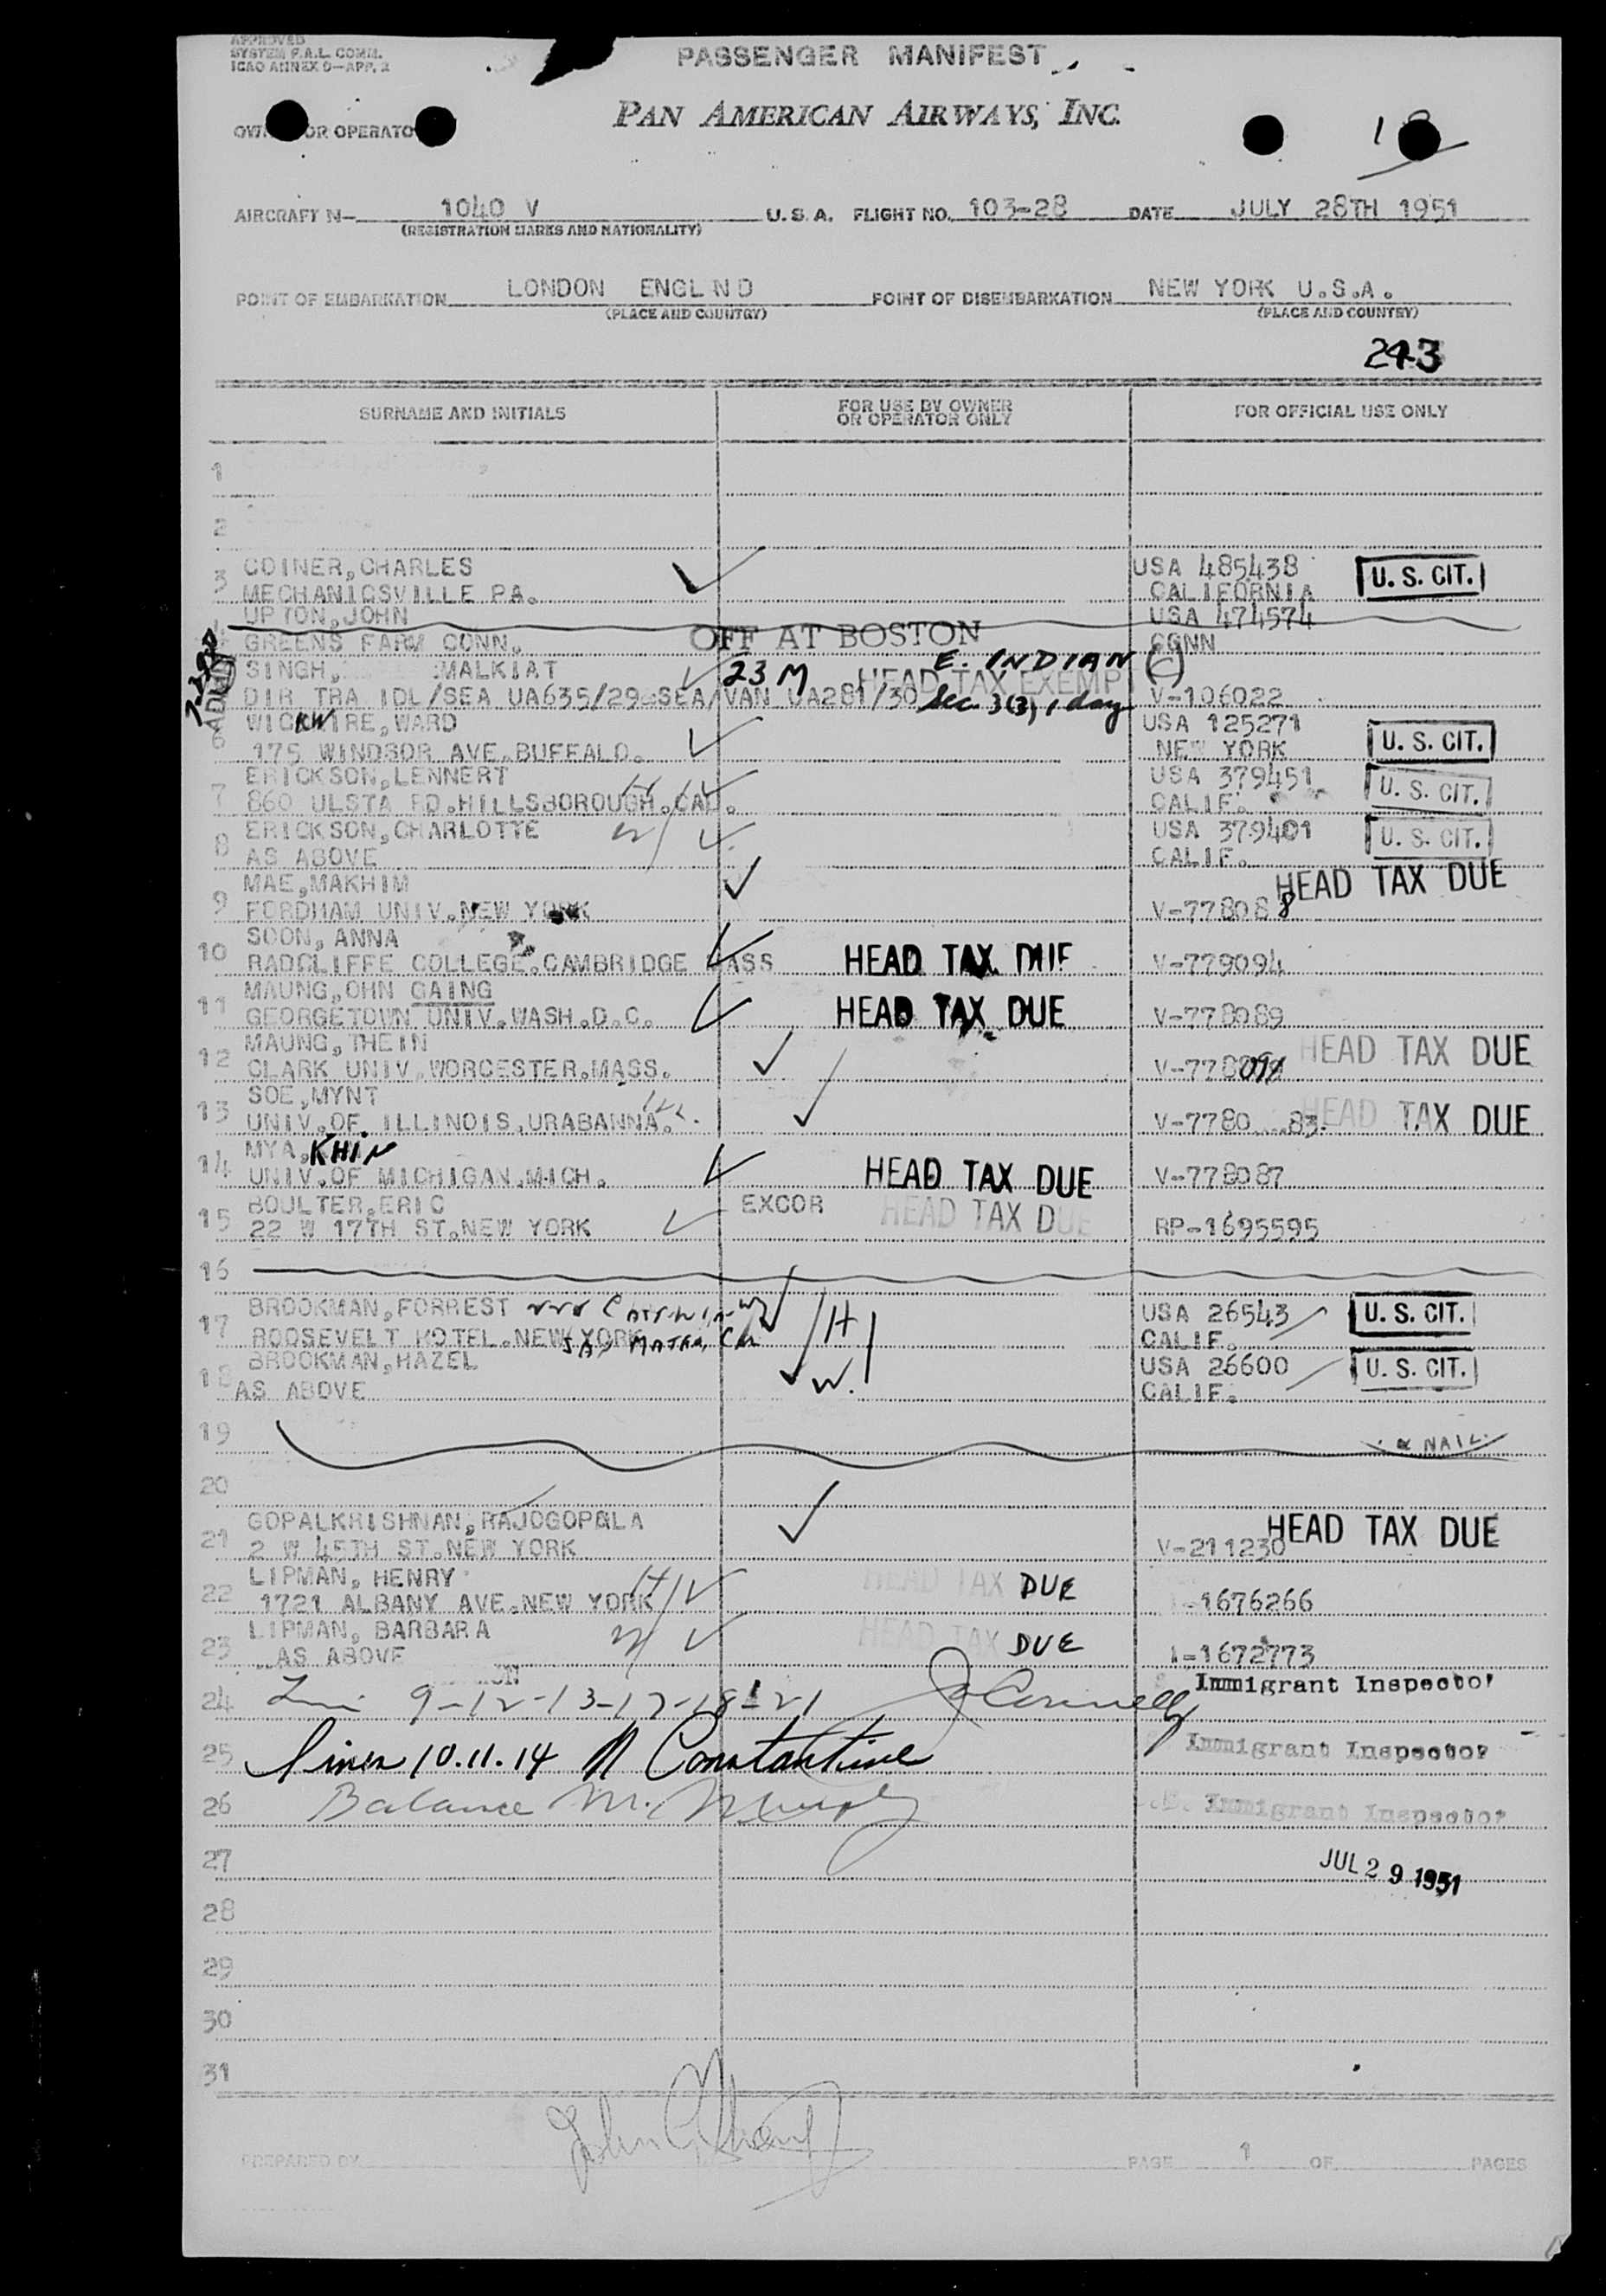 APPROVED
SYSTEM F.A.L. COMM.
ICAO ANNEX 9—APP. 2
PASSENGER MANIFEST
PAN AMERICAN AIRWAYS, INC.
OR OPERATO
AIRCRAFT N— 1040 V U. S. A. FLIGHT NO. 103-28 DATE JULY 28TH 1951
(REGISTRATION MARKS AND NATIONALITY)
POINT OF EMBARKATION LONDON ENGL ND POINT OF DISEMBARKATION NEW YORK U.S.A.
(PLACE AND COUNTRY) (PLACE AND COUNTRY)
243
SURNAME AND INITIALS FOR USE BY OWNER OR OPERATOR ONLY FOR OFFICIAL USE ONLY
1
2
3 COINER,CHARLES USA 485438 U. S. CIT.
MECHANICSVILLE PA. CALIFORNIA
UPTON,JOHN USA 474574
GREENS FARM CONN. OFF AT BOSTON CONN
SINGH, MALKIAT 23 M E. INDIAN (C) HEAD TAX EXEMP
DIR TRA IDL/SEA UA635/29 SEA/VAN UA281/30 Sec. 3(3), 1 day V-106022
WICKWIRE,WARD USA 125271
6 175 WINDSOR AVE.BUFFALO. NEW YORK U. S. CIT.
ERICKSON,LENNERT H USA 379451
7 860 ULSTA RD.HILLSBOROUGH.CAL. CALIF. U. S. CIT.
ERICKSON,CHARLOTTE W USA 379401
8 AS ABOVE CALIF. U. S. CIT.
MAE,MAKHIM HEAD TAX DUE
9 FORDHAM UNIV.NEW YORK V-778088
SOON, ANNA
10 RADCLIFFE COLLEGE.CAMBRIDGE MASS HEAD TAX DUE V-779094
MAUNG,OHN GAING
11 GEORGETOWN UNIV.WASH.D.C. HEAD TAX DUE V-778089
MAUNG,THEIN HEAD TAX DUE
12 CLARK UNIV.WORCESTER.MASS.
SOE,MYNT
13 UNIV.OF ILLINOIS,URABANNA. V-7780 83 HEAD TAX DUE
MYA, KHIN
14 UNIV.OF MICHIGAN.MICH. HEAD TAX DUE V-778087
BOULTER,ERIC EXCOR HEAD TAX DUE
15 22 W 17TH ST.NEW YORK RP-1695595
16
BROOKMAN,FORREST USA 26543 U. S. CIT.
17 ROOSEVELT HOTEL.NEW YORK SAN MATEO, Cal H CALIF.
BROOKMAN,HAZEL USA 26600 U. S. CIT.
18 AS ABOVE W. CALIF.
19 NAIL
20
GOPALKRISHNAN,RAJOGOPALA HEAD TAX DUE
21 2 W 45TH ST.NEW YORK V-211230
LIPMAN, HENRY H HEAD TAX DUE
22 1721 ALBANY AVE.NEW YORK -1676266
LIPMAN, BARBARA W HEAD TAX DUE
23 AS ABOVE 1-1672773
24 9-12-13-17-18-21 J Connelly Immigrant Inspector
25 lines 10.11.14 N Constantine Immigrant Inspector
26 Balance M. Murphy Immigrant Inspector
27 JUL 29 1951
28
29
30
31
PREPARED BY PAGE 1 OF PAGES